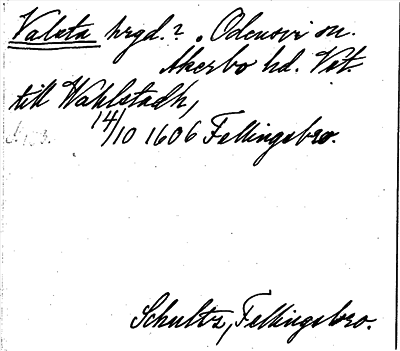 Valsta hrgd.? Odensvi sn.
Åkerbo hd. Vät.
till Wahlstadh,
14/10 1606 Fellingsbro.
Schultz, Fellingsbro.